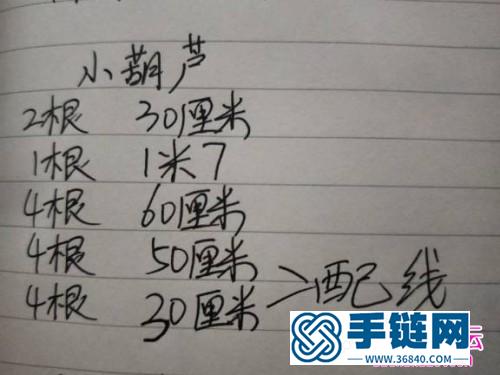 小葫芦
2根 30厘米
1根 1米7
4根 60厘米
4根 50厘米
4根 30厘米 >配线
手链网
www.36840.com